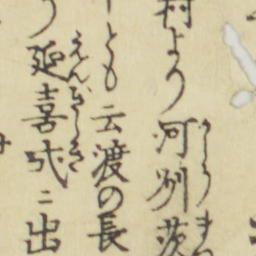 村より河州茨
とも云渡の長
えんぎしき
延喜式ニ出